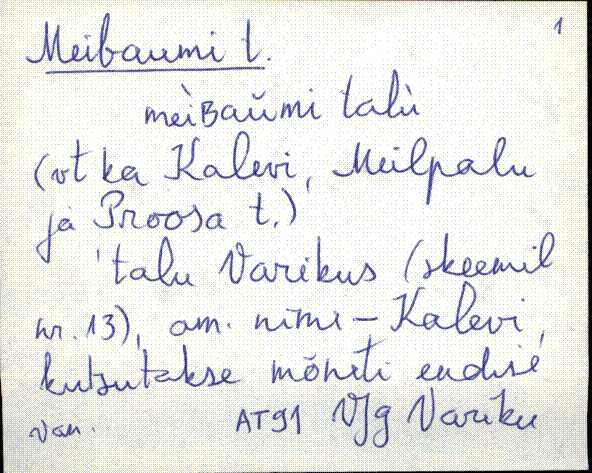 1
Meibaumi t.
mèiBaŭmi talù
(vt ka Kalevi, Meilpalu
ja Proosa t.)
'talu Varikus (skeemil
nr. 13), am. nimi – Kalevi,
kutsutakse mõneti endise
van. AT91 VJg Variku